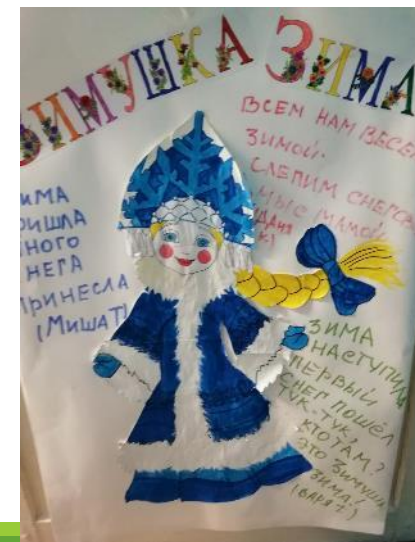 ЗИМУШКА ЗИМА
ВСЕМ НАМ ВЕСЕ
ЗИМОЙ.
СЛЕПИМ СНЕГОВ
МЫ С МАМОЙ
ИМА
РИШЛА
НОГО
НЕГА
ПРИНЕСЛА
(МИША Т)
ЗИМА
НАСТУПИЛА
ПЕРВЫЙ
СНЕГ ПОШЁЛ
ТУК-ТУК,
КТО ТАМ?
ЭТО ЗИМУШК
ЗИМА!
(ВАРЯ Т)